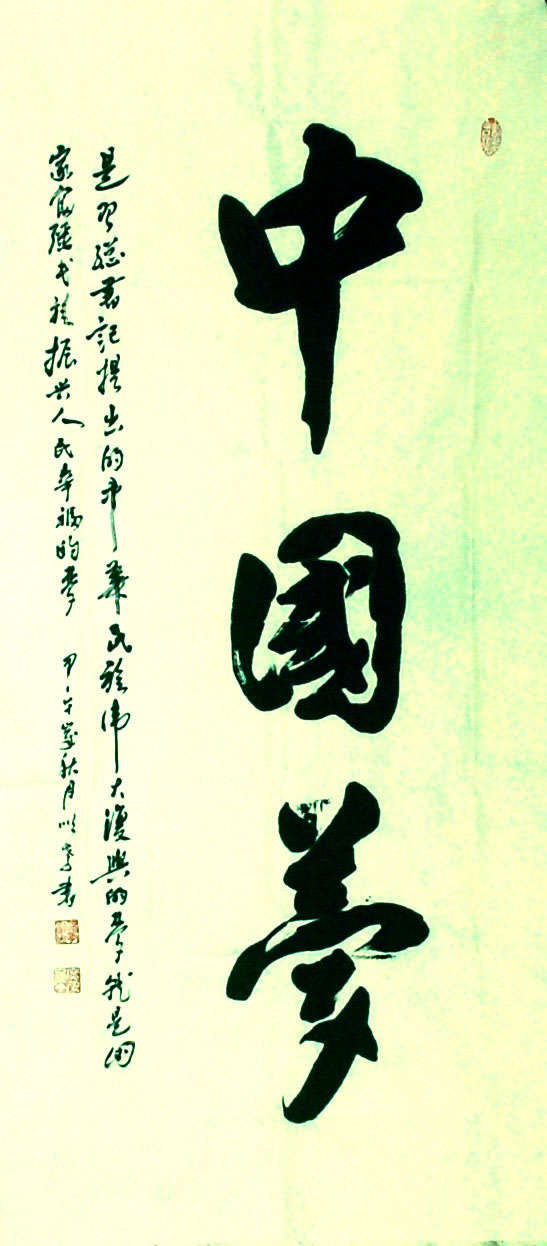 中國夢
是習總書記提出的中華民族伟大復興的夢就是國
家富强民族振兴人民幸福的夢 甲午歲秋月